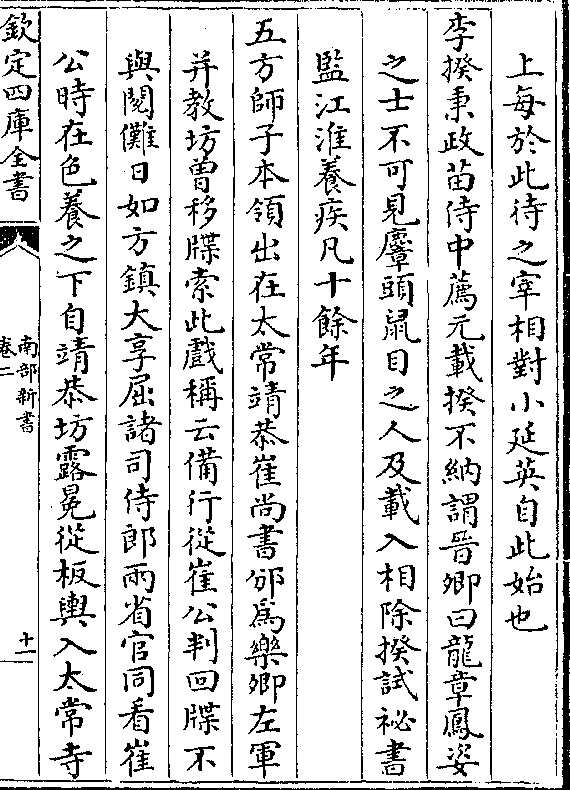 上每於此待之宰相對小延英自此始也
李揆秉政苗侍中薦元載揆不納謂晉卿曰龍章鳳姿
之士不可見麞頭鼠目之人及載入相除揆試祕書
監江淮養疾凡十餘年
五方師子本領出在太常靖恭崔尚書邠爲樂卿左軍
并教坊曾移牒索此戲稱云備行從崔公判回牒不
與閱儺日如方鎮大享屈諸司侍郎兩省官同看崔
公時在色養之下自靖恭坊露冕從板輿入太常寺
欽定四庫全書
南部新書
卷二
十一